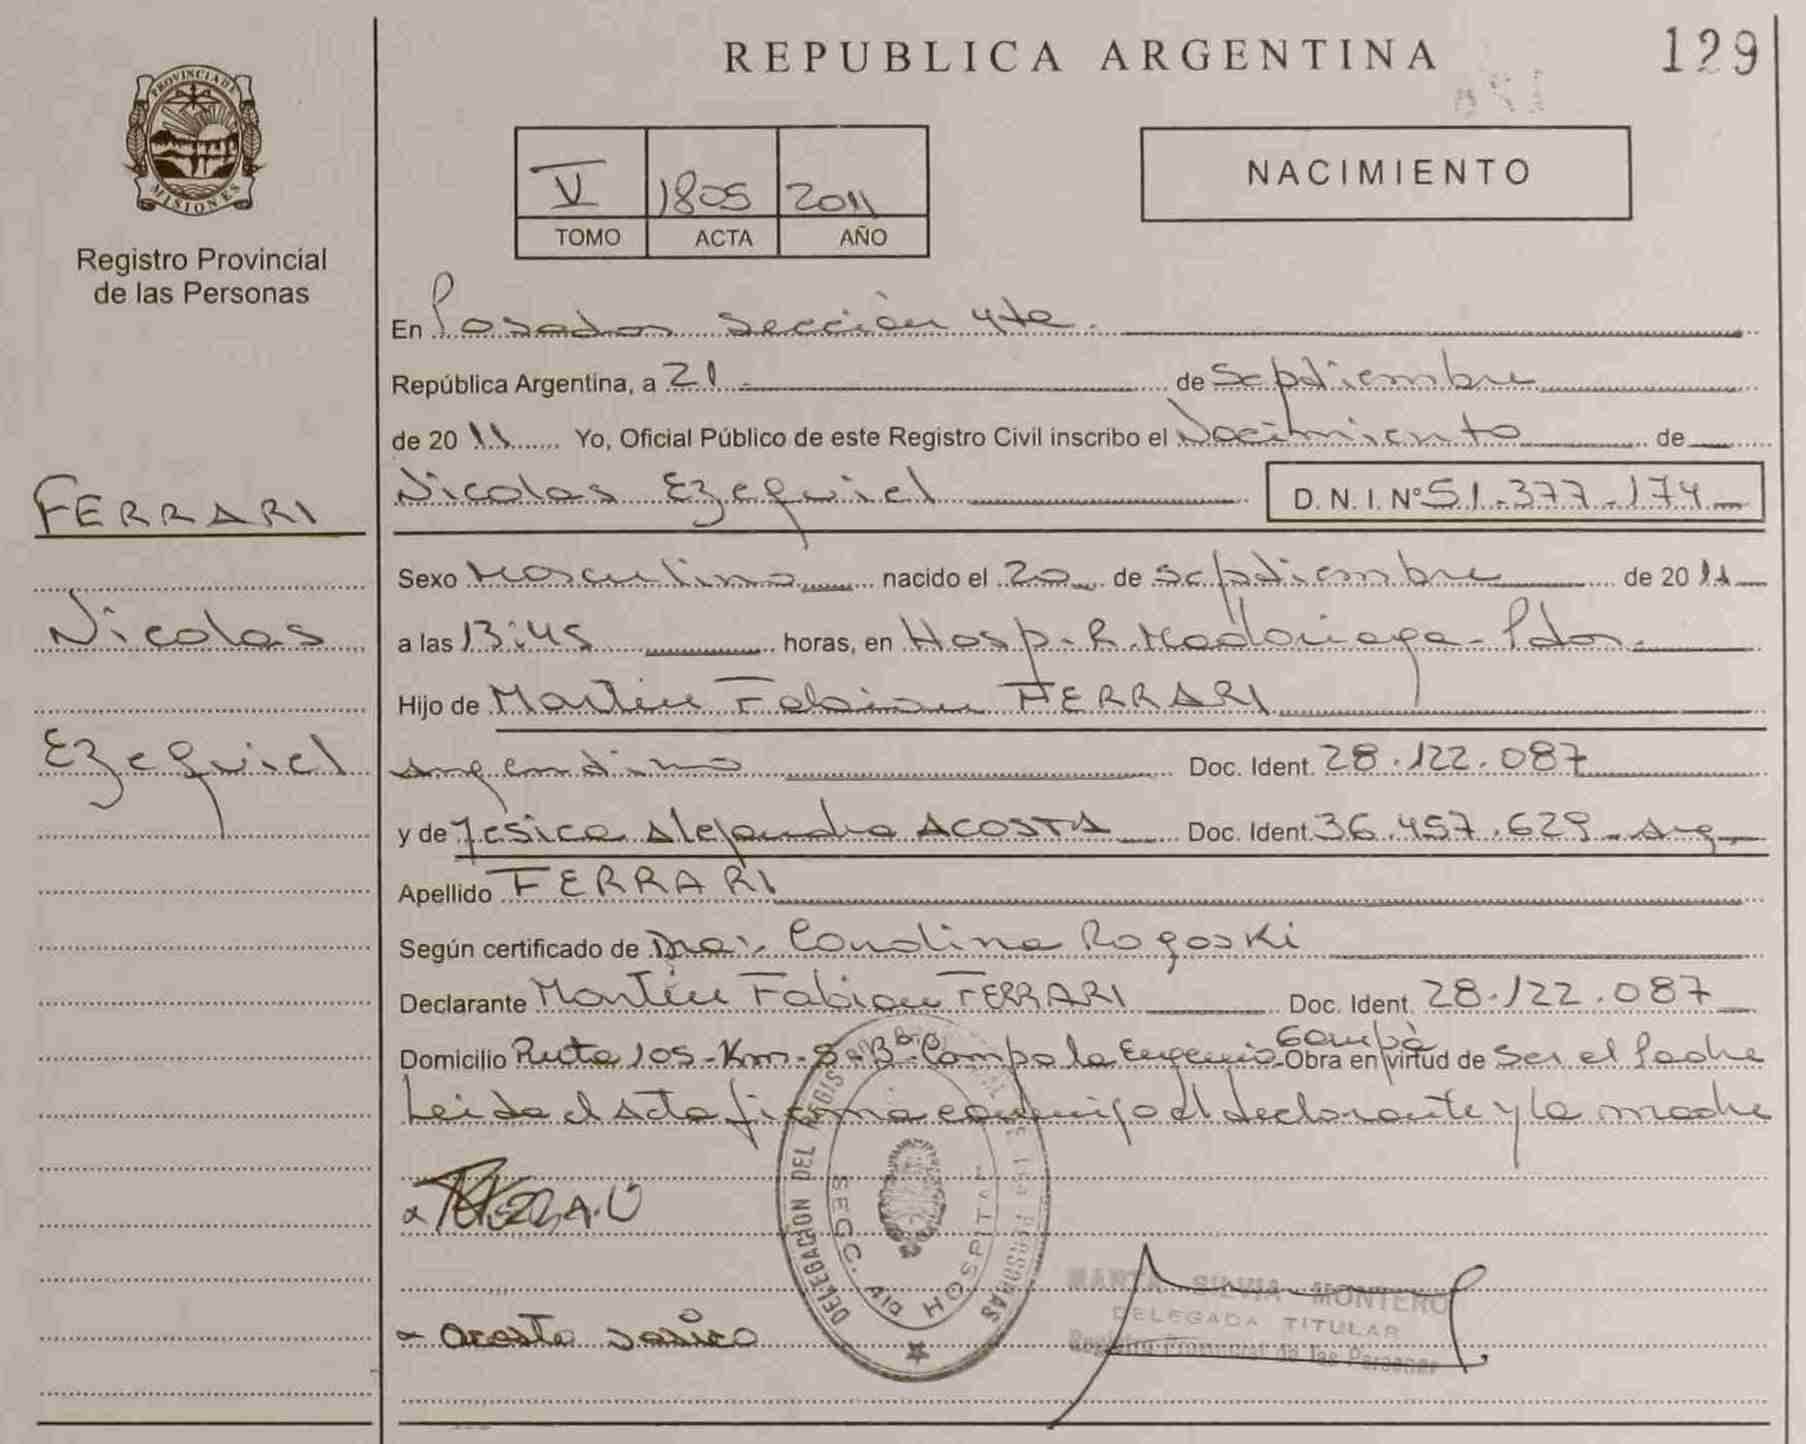 REPUBLICA ARGENTINA
129
PROVINCIA DE
MISIONES
Registro Provincial
de las Personas
V 1805 2011
TOMO ACTA AÑO
NACIMIENTO
En Posadas Sección 4ta.
República Argentina, a 21 de Septiembre
de 20 11 Yo, Oficial Público de este Registro Civil inscribo el Nacimiento de
Nicolas Ezequiel D. N. I. Nº 51.377.174
FERRARI
Nicolas
Ezequiel
Sexo Masculino nacido el 20 de Septiembre de 20 11
a las 13:45 horas, en Hosp. R. Madariaga - Pdas.
Hijo de Martin Fabian FERRARI
argentino Doc. Ident. 28.122.087
y de Jesica Alejandra ACOSTA Doc. Ident. 36.457.629 - Arg
Apellido FERRARI
Según certificado de Dra: Rogoski
Declarante Martin Fabian FERRARI Doc. Ident. 28.122.087
Domicilio Ruta 105 - Km - 8 - Bº Campo la Eugenia Garupá Obra en virtud de Ser el Padre
Leida el Acta firma conmigo el declarante y la madre
DELEGACIÓN DEL REGISTRO PERSONAS
SECC. 4ta HOSPITAL
Acosta Jesica
MARTA SILVIA MONTERO
DELEGADA TITULAR
Registro Provincial de las Personas